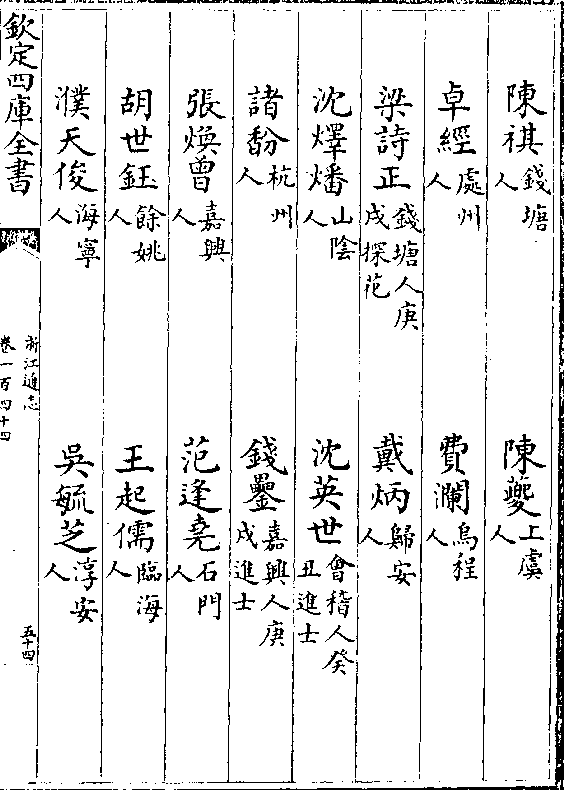 陳祺錢塘人 陳夔上虞人
卓經處州人 費瀾烏程人
梁詩正錢塘人庚戌探花 戴炳歸安人
沈燡燔山陰人 沈英世會稽人癸丑進士
諸馚杭州人 錢鑾嘉興人庚戌進士
張煥曾嘉興人 范逢堯石門人
胡世鈺餘姚人 王起儒臨海人
濮天俊海寧人 吳毓芝淳安人
欽定四庫全書
浙江通志
卷一百四十四
五十四